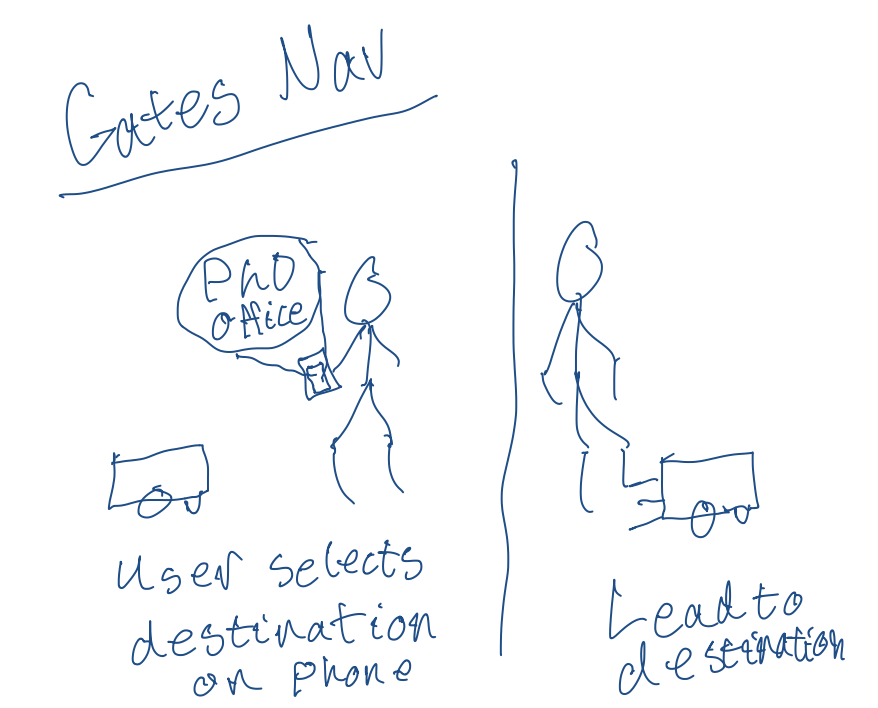 Gates Nav
PhD
office
User selects
destination
on phone
Lead to
destination